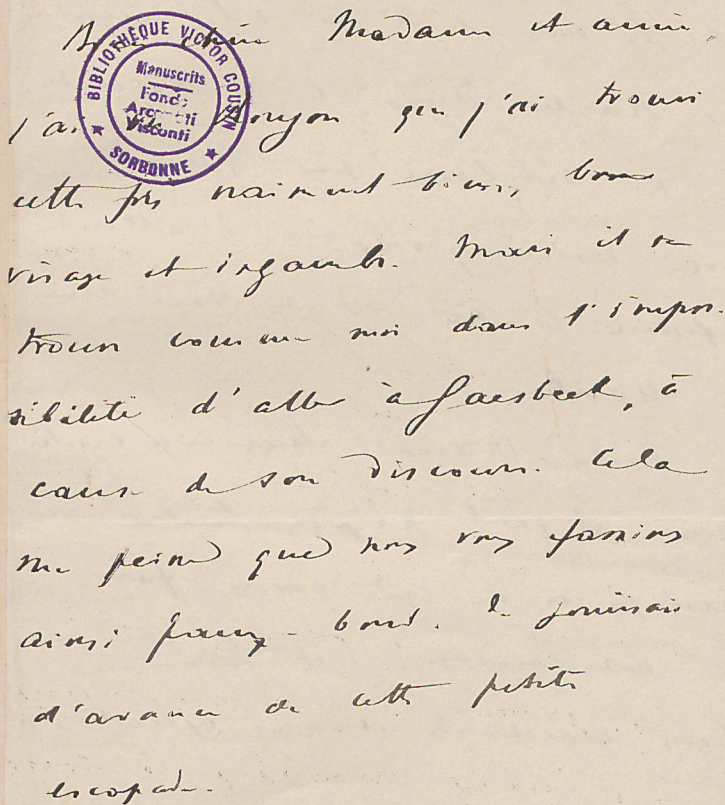 Bien chère Madame et amie,
BIBLIOTHÈQUE VICTOR COUSIN
Manuscrits
Fonds
Arconati
Visconti
SORBONNE
j'ai vu Roujon que j'ai trouvé
cette fois vraiment bien, bon
visage et ingambe. Mais il se
trouve comme moi dans l'impos-
sibilité d'aller à Gaesbeek, à
cause de son discours. Cela
me peine que nous vous fassions
ainsi faux-bond. Je jouissais
d'avance de cette petite
escapade.